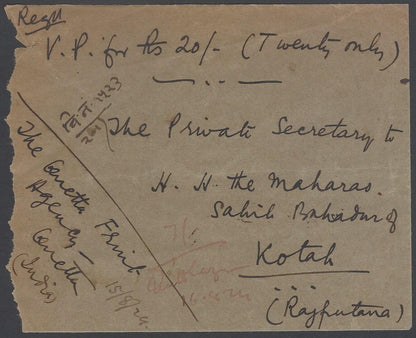 Regd
V. P. for Rs 20/- (Twenty only)
The Private Secretary to
H. H. the Maharao
Sahib Bahadur of
Kotah
(Rajputana)
The
Agency
(India)
15/8/24